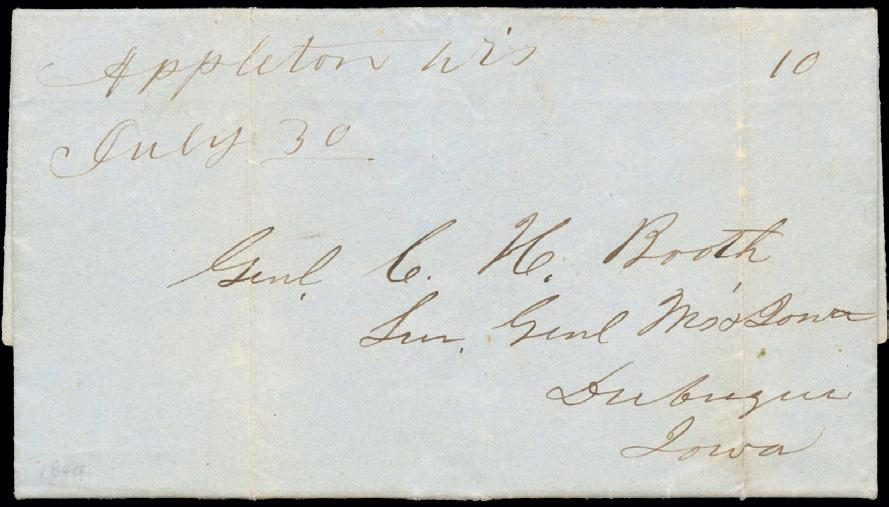 Appleton Wis 10
July 30
Genl. C. H. Booth
Sur. Genl Wis & Iowa
Dubuque
Iowa
1849